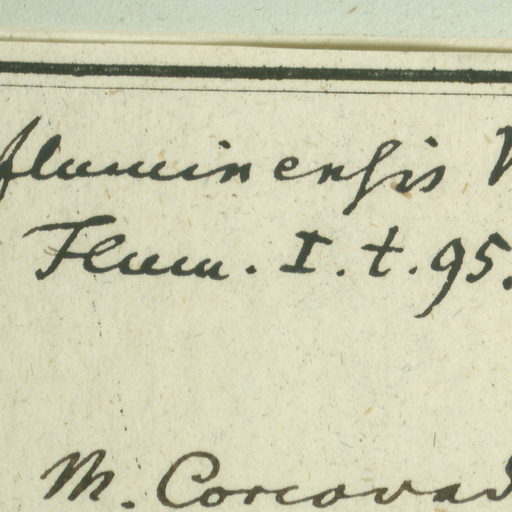 fluminensis V
Flum. I. t. 95.
M. Corcovad